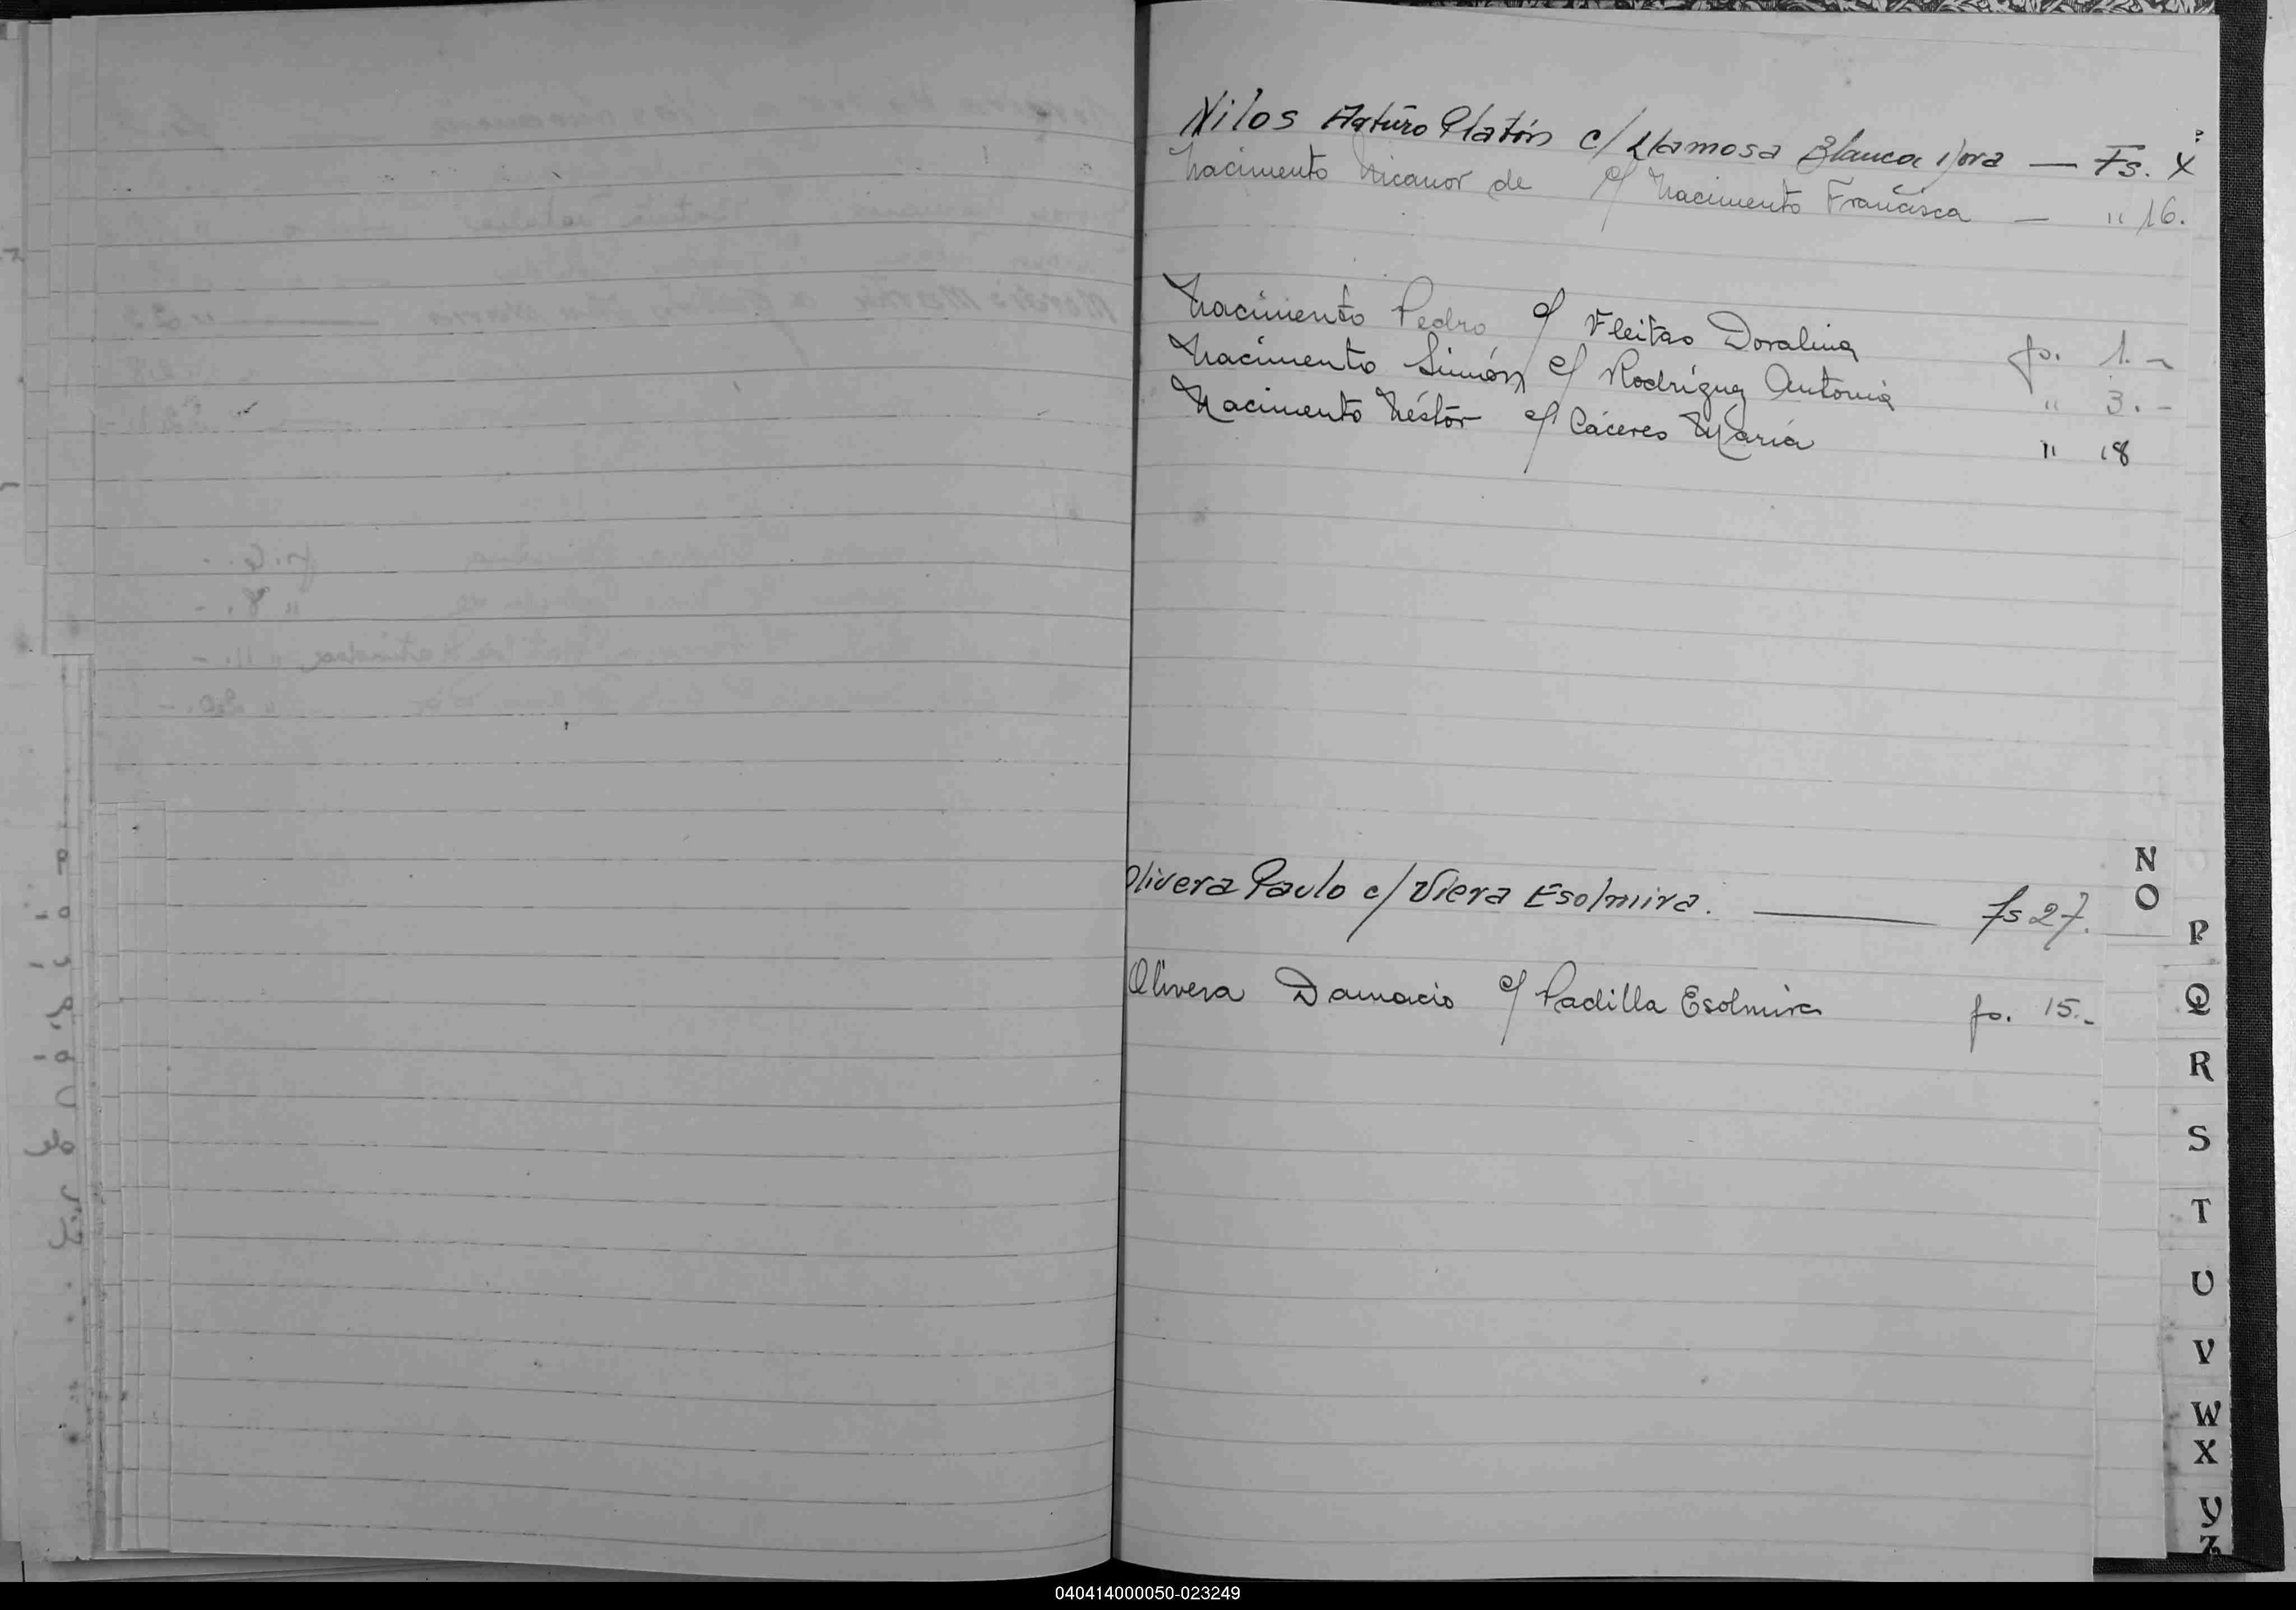 Nilos Arturo Platón c/ Llamosa Blanca Dora — Fs. X
Nacimento Nicanor de c/ Nacimento Francisca — " 16.
Nacimiento Pedro c/ Fleitas Doralina fs. 1.-
Nacimento Simón c/ Rodríguez Antonia " 3.-
Nacimento Néstor c/ Cáceres María " 18
Olivera Paulo c/ Viera Esolmira. — fs 27.
Olivera Damacio c/ Padilla Esolmira fs. 15.-
N
O
P
Q
R
S
T
U
V
W
X
Y
Z
040414000050-023249